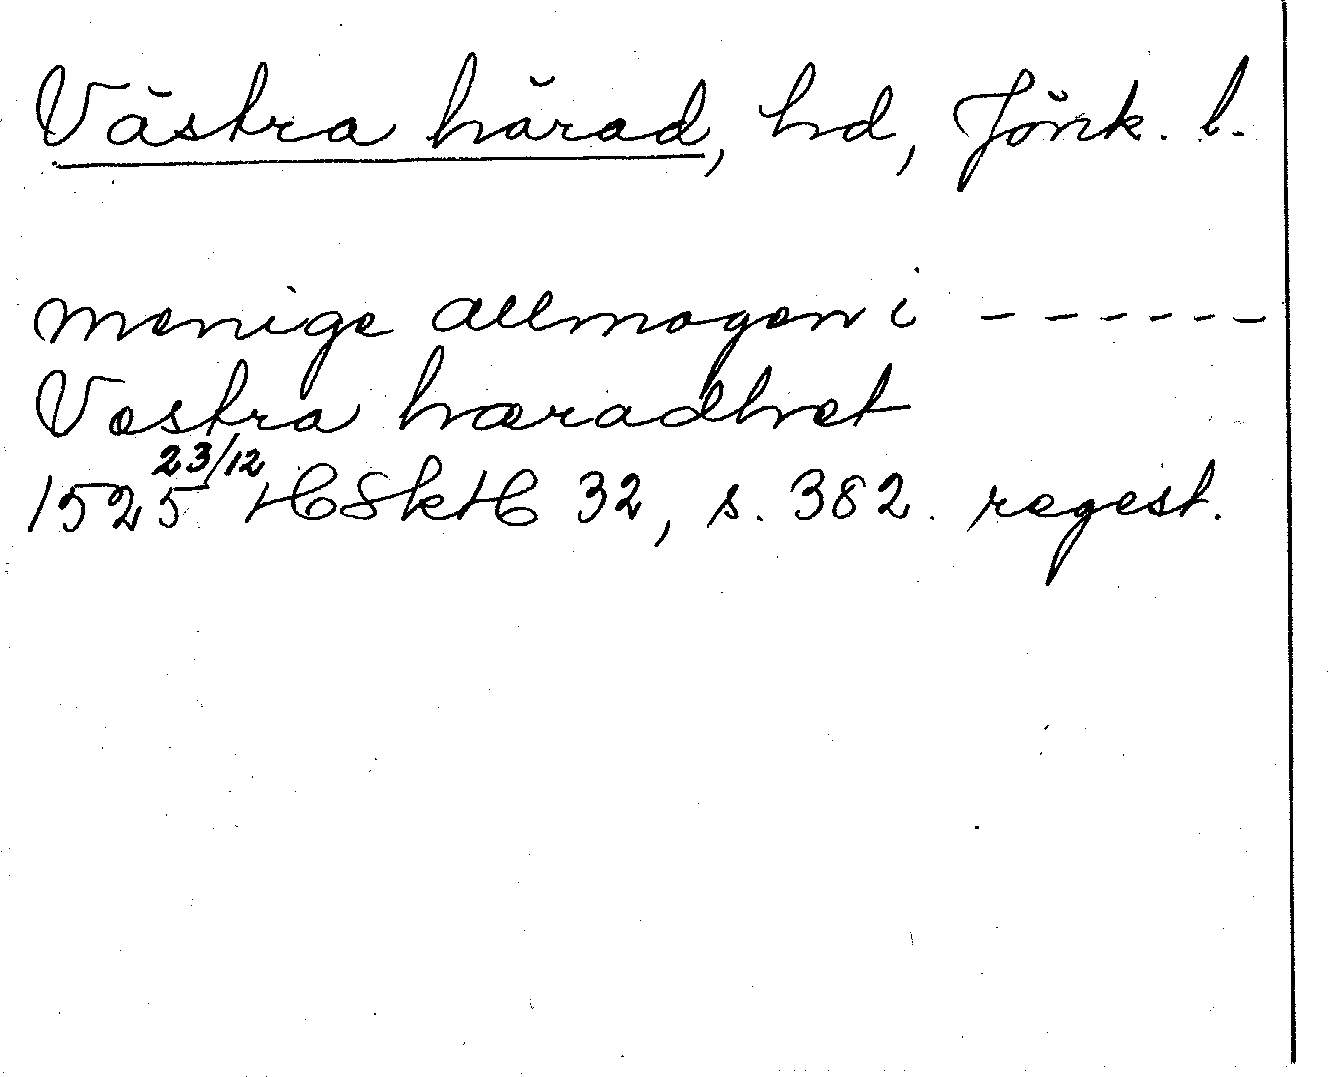 Västra härad, hd, Jönk. l.
menige allmogen i ------
Vestra hæradhet
1525 23/12 HSkH 32, s. 382. regest.